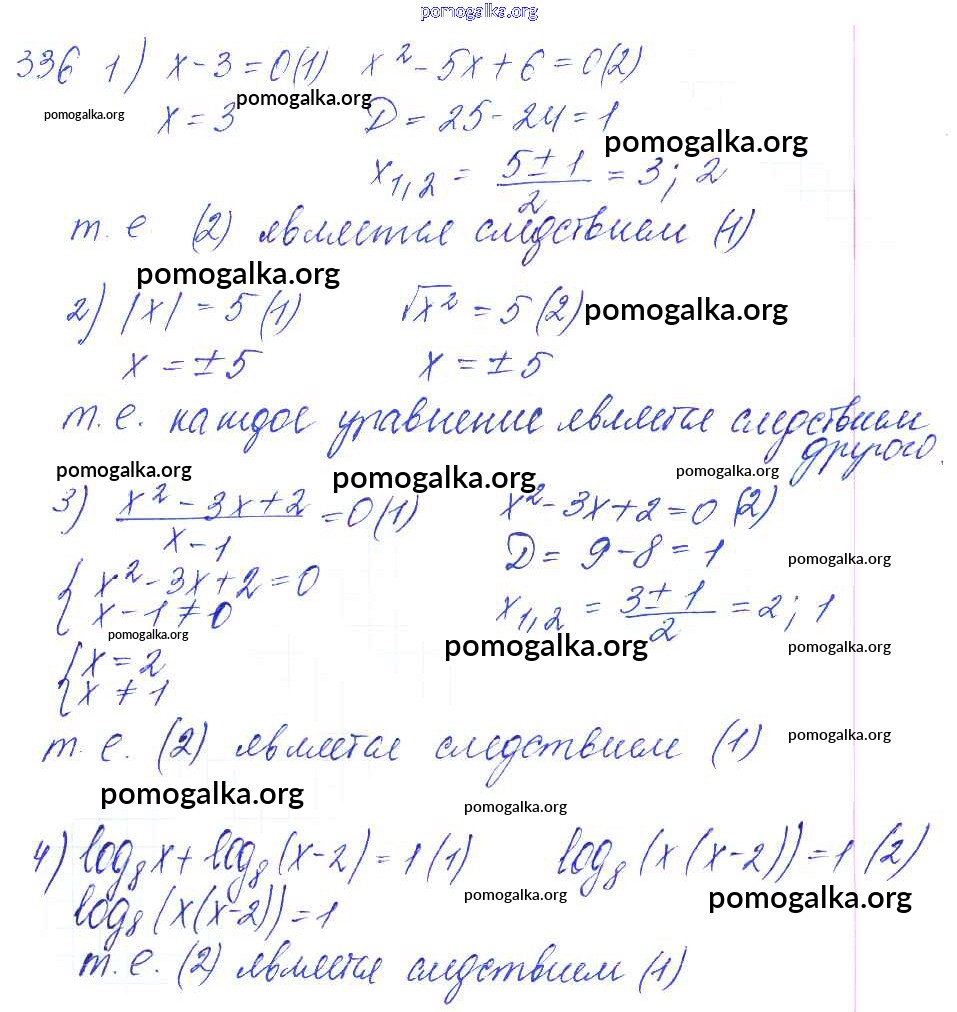 pomogalka.org
336 1) x - 3 = 0 (1) x² - 5x + 6 = 0 (2)
pomogalka.org x = 3 pomogalka.org D = 25 - 24 = 1
pomogalka.org
x₁,₂ = (5 ± 1)/2 = 3; 2
т. е. (2) является следствием (1)
pomogalka.org
2) |x| = 5 (1) √x² = 5 (2) pomogalka.org
x = ±5 x = ±5
т. е. каждое уравнение является следствием
другого.
pomogalka.org pomogalka.org pomogalka.org
3) (x² - 3x + 2)/(x - 1) = 0 (1) x² - 3x + 2 = 0 (2)
D = 9 - 8 = 1 pomogalka.org
{ x² - 3x + 2 = 0
x - 1 ≠ 0 x₁,₂ = (3 ± 1)/2 = 2; 1
pomogalka.org pomogalka.org pomogalka.org
{ x = 2
x ≠ 1
т. е. (2) является следствием (1) pomogalka.org
pomogalka.org pomogalka.org
4) log₈x + log₈(x - 2) = 1 (1) log₈(x(x - 2)) = 1 (2)
log₈(x(x - 2)) = 1 pomogalka.org pomogalka.org
т. е. (2) является следствием (1) pomogalka.org